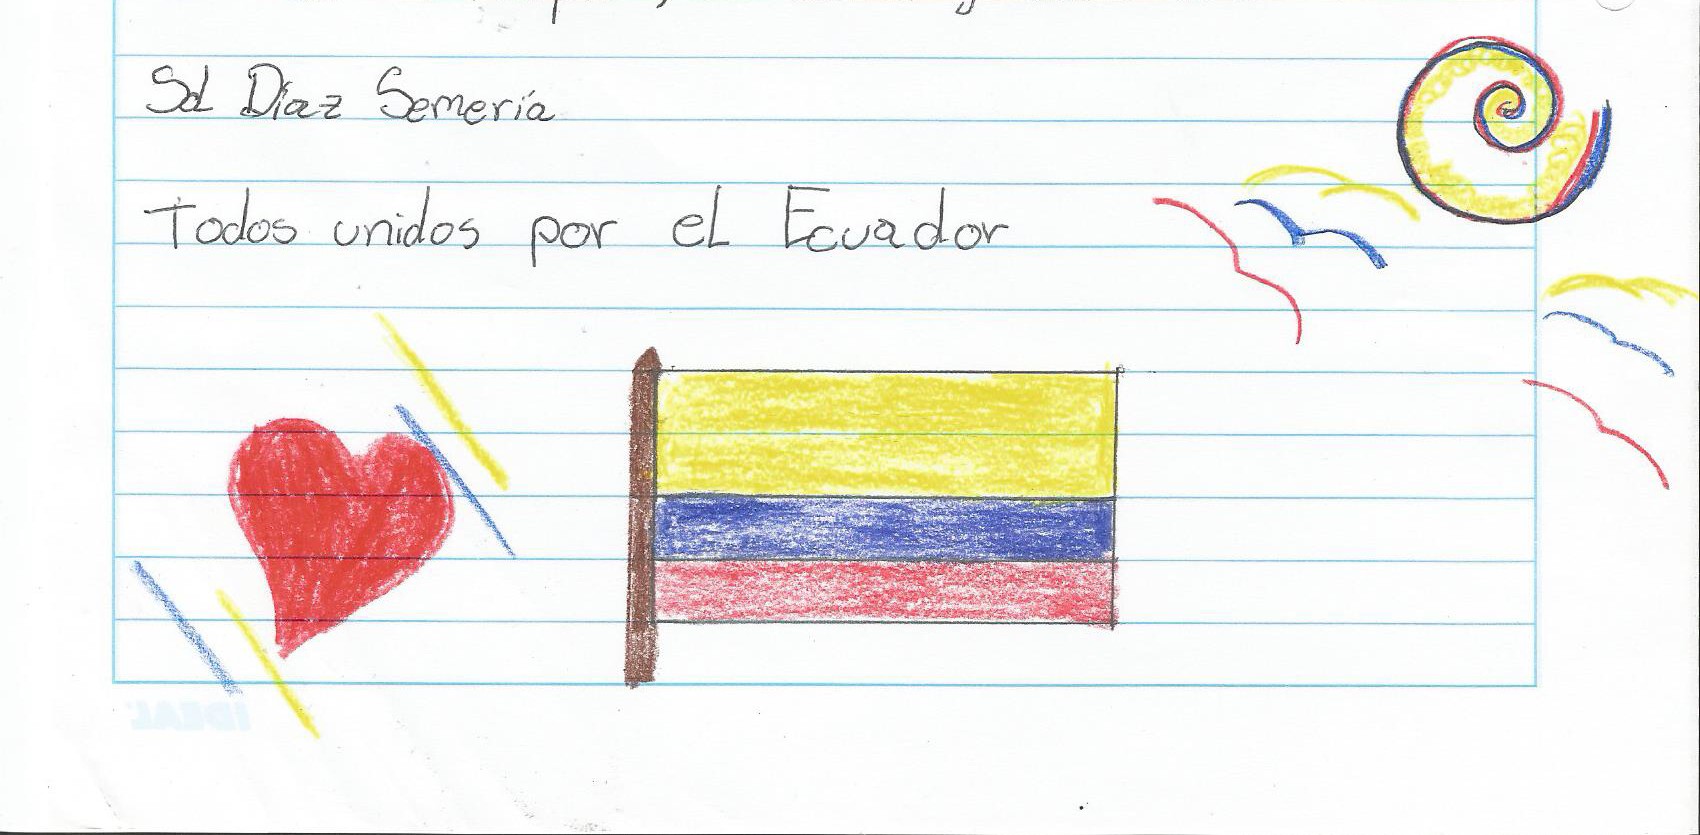 Sol Díaz Semería
Todos unidos por el Ecuador
IDEAL